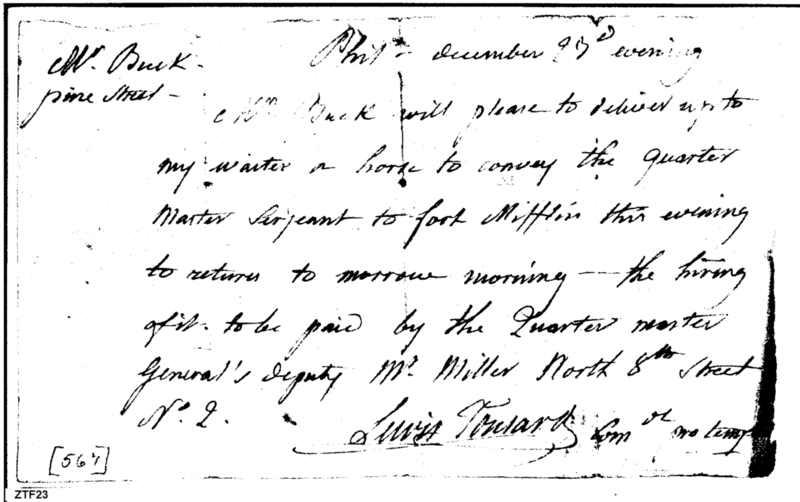 Mr. Buck -
pine Street -
Phila- december 27d evening
Mr. Buck will please to deliver up to
my waiter a horse to convey the Quarter
Master Serjeant to fort Mifflin this evening
to return to morrow morning — the hiring
of it - to be paid by the Quarter master
General's deputy Mr. Miller North 8th Street
No. 2.
Lewis Tousard Comdt
[567]
ZTF23